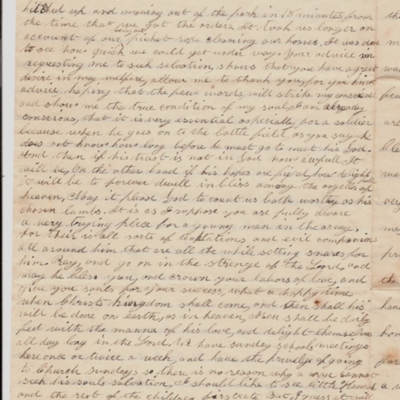 hitched up and moveing out of the park in 15 minutes from
the time that we got the orders. It took us longer on
account of our picket rope cleaning our horses. It was done
to see how quick we could get under way. Your advice in
requesting me to seek salvation, shows that you have a great
desire in my welfare, allow me to thank you for you kind
advice hopeing that the few words will strike my conscience
and show me the true condition of my soul. I am already
conscious, that it is very essential especially for a soldier
because when he goes on to the battle field as you say he
does not know how long before he must go to meet his God.
And then if his trust is not in God how awfull it
will be, On the other hand if his hopes are fixed, how
it will be to forever dwell in bliss among the angels of
heaven, O may it please God to count us both worthy as his
chosen lambs. It is as I suppose you are fully aware
a very trying place for a young man in the army.
for their is all sorts of temptations and evil companions
all around him that are all the while setting snares for
him. Pray, and go on in the strength of the Lord, and
may he bless you, and crown your labors of love, and
give you souls for your what a happy time
when Christs kingdom shall come, and then shall his
will be done on earth, as in heaven, When shall be dayly
fed with the manna of his love, and delight themselves
all day long in the Lord. We have sunday school, meetings
here once or twice a week, and have the privelege of going
to Church Sundays so there is no reason why a man cannot
seek his souls salvation, I should like to see little
and the rest of the children first rate But I guess it will